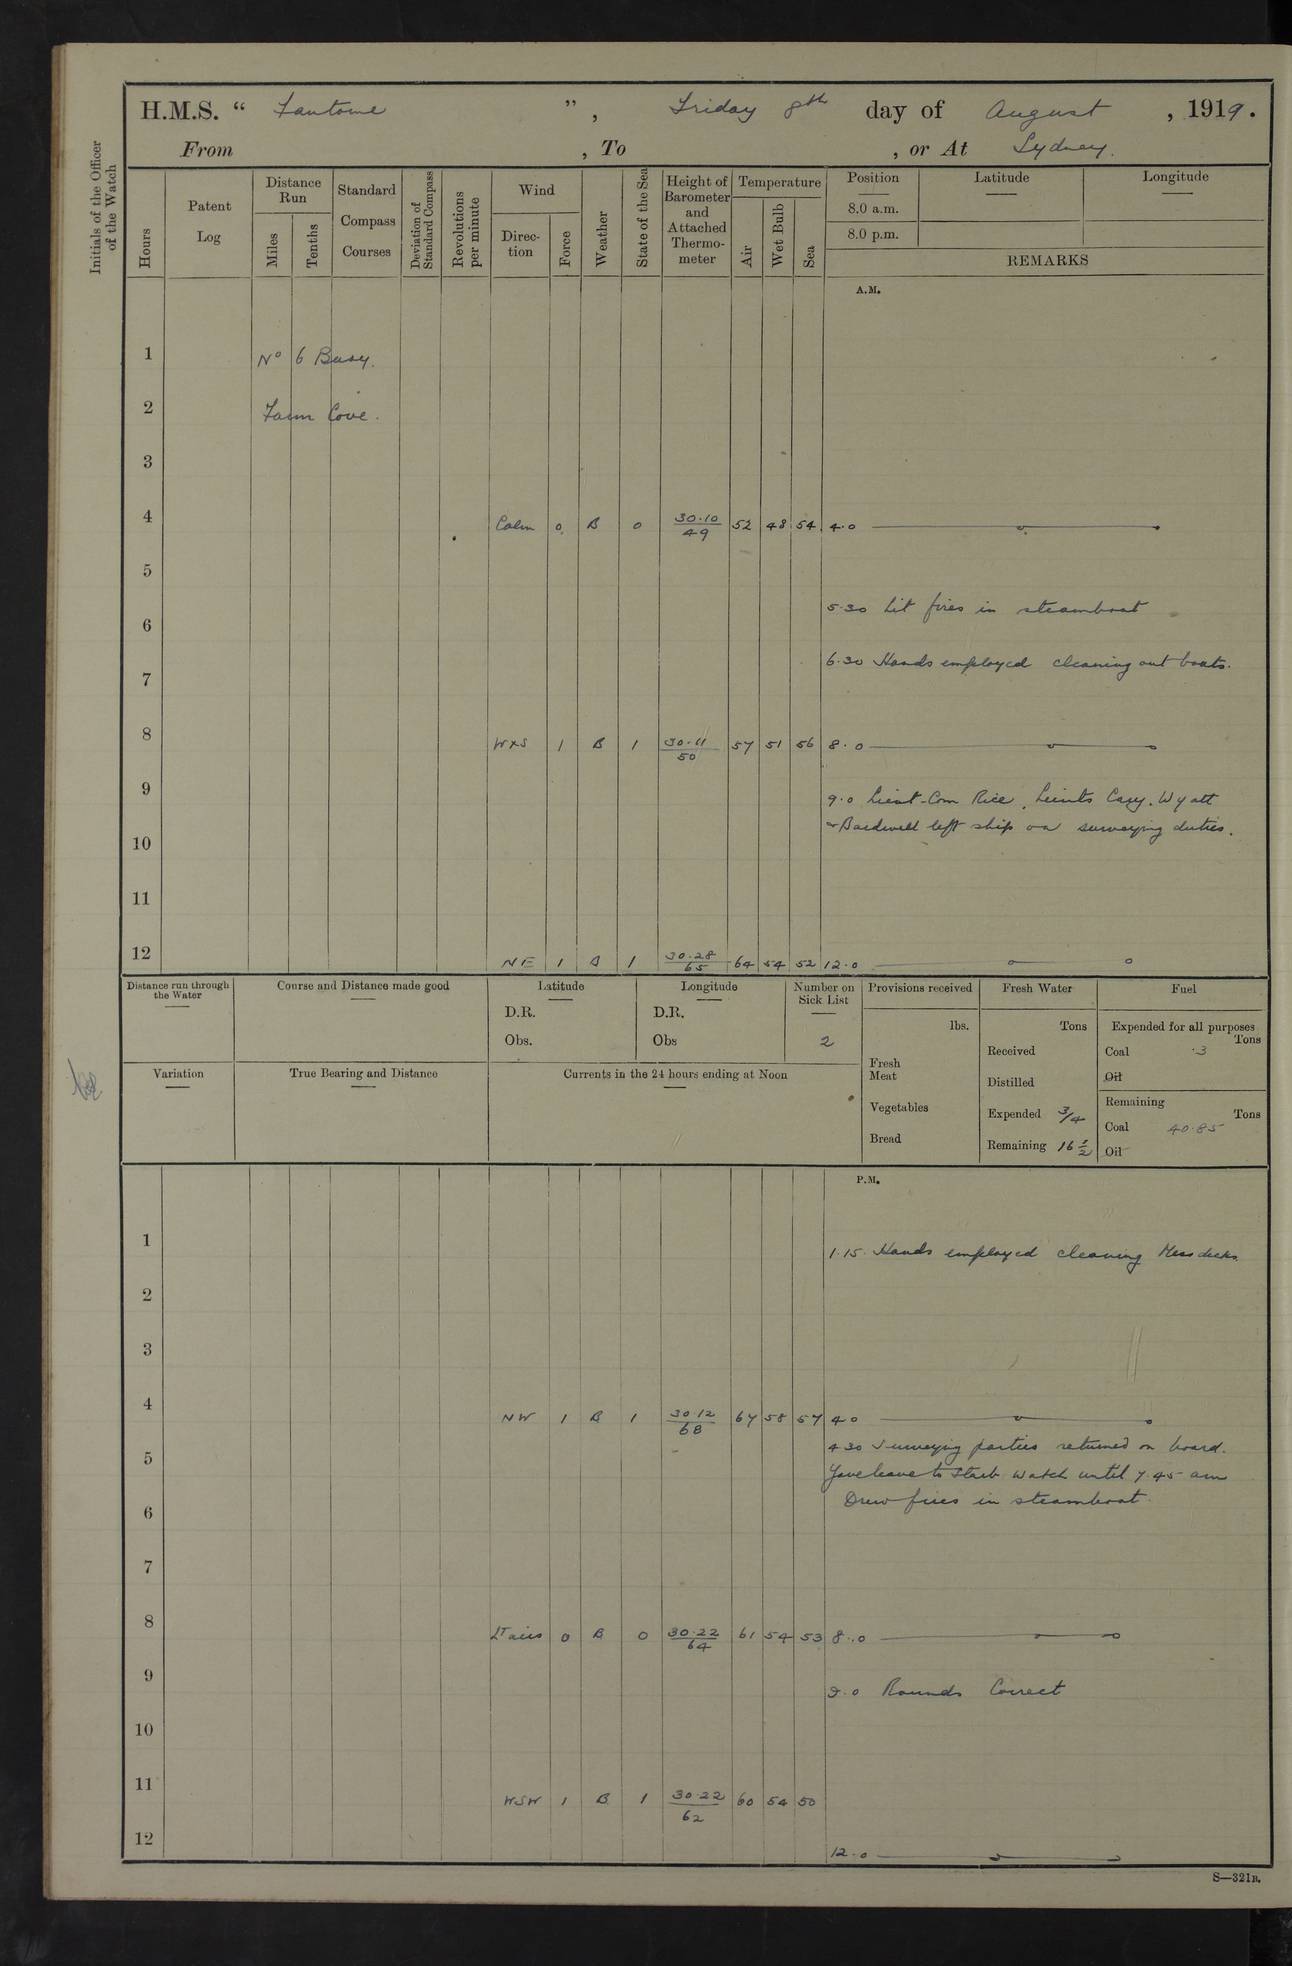 H.M.S. “ Fantome ”, Friday 8th day of August , 1919.
From , To , or At Sydney.
Initials of the Officer of the Watch
Hours
Patent Log
Distance Run
Miles
Tenths
Standard Compass Courses
Deviation of Standard Compass
Revolutions per minute
Wind
Direc-tion
Force
Weather
State of the Sea
Height of Barometer and Attached Thermo-meter
Temperature
Air
Wet Bulb
Sea
Position Latitude Longitude
8.0 a.m.
8.0 p.m.
REMARKS
A.M.
1 No 6 Buoy.
2 Farm Cove.
3
4 Calm 0 B 0 30.10/49 52 48 54 4.0
5
5.30 Lit fires in steamboat
6
6.30 Hands employed cleaning out boats.
7
8 WxS 1 B 1 30.11/50 57 51 56 8.0
9 9.0 Lieut-Com Rice, Lieuts Cary, Wyatt
& Bardwell left ship on surveying duties.
10
11
12 NE 1 B 1 30.28/65 64 54 52 12.0
Distance run through the Water
Course and Distance made good
Latitude
D.R.
Obs.
Longitude
D.R.
Obs
Number on Sick List
2
Provisions received
lbs.
Fresh Meat
Vegetables
Bread
Fresh Water
Tons
Received
Distilled
Expended 3/4
Remaining 16 1/2
Fuel
Expended for all purposes
Tons
Coal .3
Oil
Remaining
Tons
Coal 40.85
Oil
Variation
True Bearing and Distance
Currents in the 24 hours ending at Noon
P.M.
1 1.15. Hands employed cleaning Mess decks.
2
3
4 NW 1 B 1 30.12/68 67 58 57 4.0
4 30 Surveying parties returned on board.
5 Gave leave to Starb. watch until 7.45 am
Drew fires in steamboat.
6
7
8 Lt airs 0 B 0 30.22/64 61 54 53 8.0
9 9.0 Rounds Correct
10
11 WSW 1 B 1 30.22/62 60 54 50
12 12.0
S—321B.